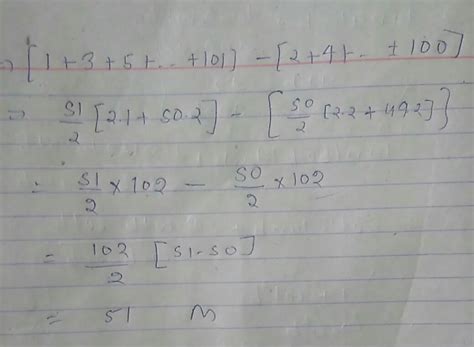 ⇒ [1+3+5+..+101] - [2+4+..+100]
⇒ 51/2 [2.1 + 50.2] - [50/2 [2.2 + 49.2]}
= 51/2 × 102 - 50/2 × 102
= 102/2 [51-50]
= 51